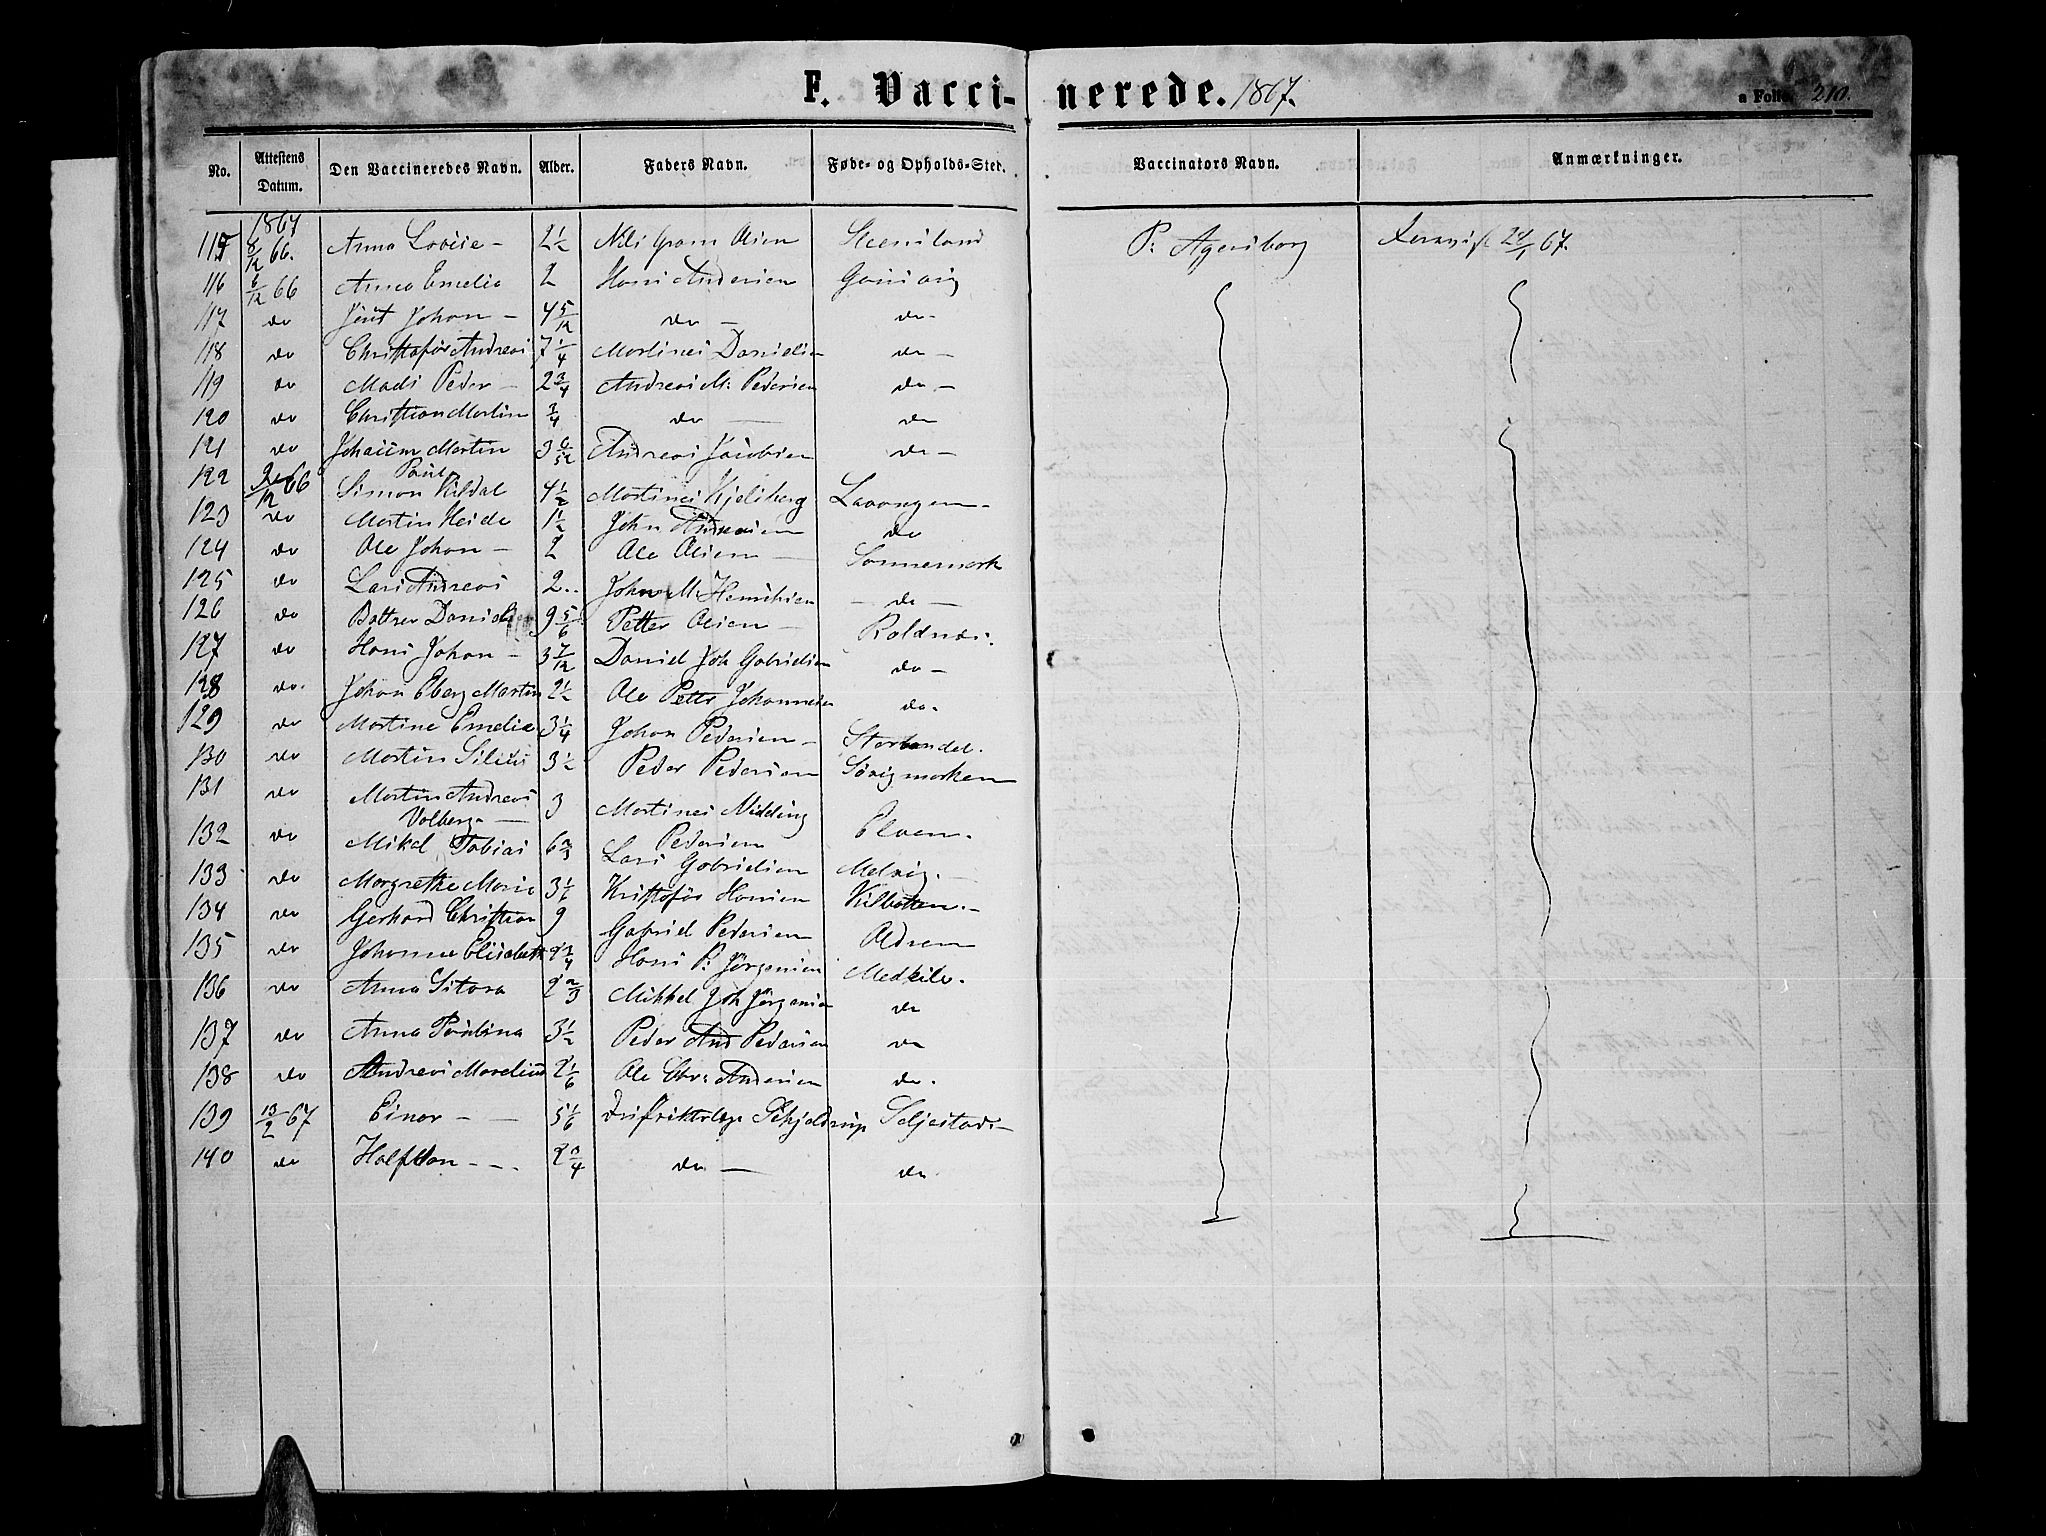 F. Vaccinerede. 1867.
a Folio. 210.
No. Attestens Datum. Den Vaccineredes Navn. Alder. Faders Navn. Føde- og Opholds-Sted. Vaccinators Navn. Anmærkninger.
1867
115 8/12 66. Anna Lovise - 2 1/2 Nils Gram Olsen Steensland P: Agersborg 24/1 67.
116 6/12 66 Anna Emelie 2 Hans Andersen Gausvig
117 do Jens Johan - 4 5/12 do - do -
118 do Christofer Andreas 7 1/4 Martines Danielsen do -
119 do Mads Peder - 2 3/4 Andreas M: Pedersen do -
120 do Christian Martin 3/4 do - do
121 do Martin 3 Andreas Jacobsen do -
122 /12 66 Simon Paul Kildal 4 1/2 Martines Kjelsberg Lavangen -
123 do Martin Heide 1 1/2 John Andersen do
124 do Ole Johan - 2 Ole Olsen - Sommermark
125 do Lars Andreas 2 .. Johan M: Henriksen - do -
126 do Daniel 9 5/6 Petter Olsen - Roldnæs.
127 do Hans Johan - 3 7/12 Daniel Joh Gabrielsen do -
128 do. Johan Eberg Martin 2 1/2 Ole Petter Johannesen do.
129 do Martine Emelie 3 1/4 Johan Pedersen -
130 do Martin Silius 3 1/2 Peder Pedersen Sørvigmarken
131 do Martin Andreas Volberg - 3 Martines Nidding Pedersen Elven.
132 do Mikal Tobias 6 2/3 Lars Gabrielsen Melvig. -
133 do Margrethe Marie 3 1/2 Kristofer Hansen Kilbotten. -
134 do Gerhard Christian 9 Gabriel Pedersen
135 do Johanna Elisabeth 2 3/4 Hans P: Jørgensen Medkile.
136 do Anna Sitora 2 2/3 Mikkel Joh Jørgensen do
137 do Anna Paulina 3 1/2 Peder And Pedersen do
138 do Andreas Mordius 2 1/6 Ole Chr: Andersen do.
139 13/2 67 Einar - - 5 1/6 Distriktslæge Schjeldrup Seljestad -
140 do Halfdan - - . 2 3/4 do - do